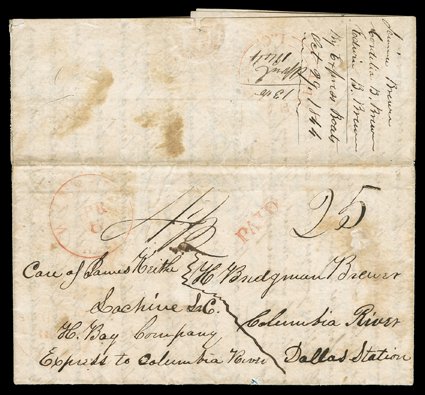 Jennie Brewer
Cordelia B. Brewer
Edwin B. Brewer
By Express Boats
Oct 29, 1844
13th
PAID
25
Care of James Keith
Lachine L.C.
H. Bay Company
Express to Columbia River
H. Bridgman Brewer
Columbia River
Dallas Station